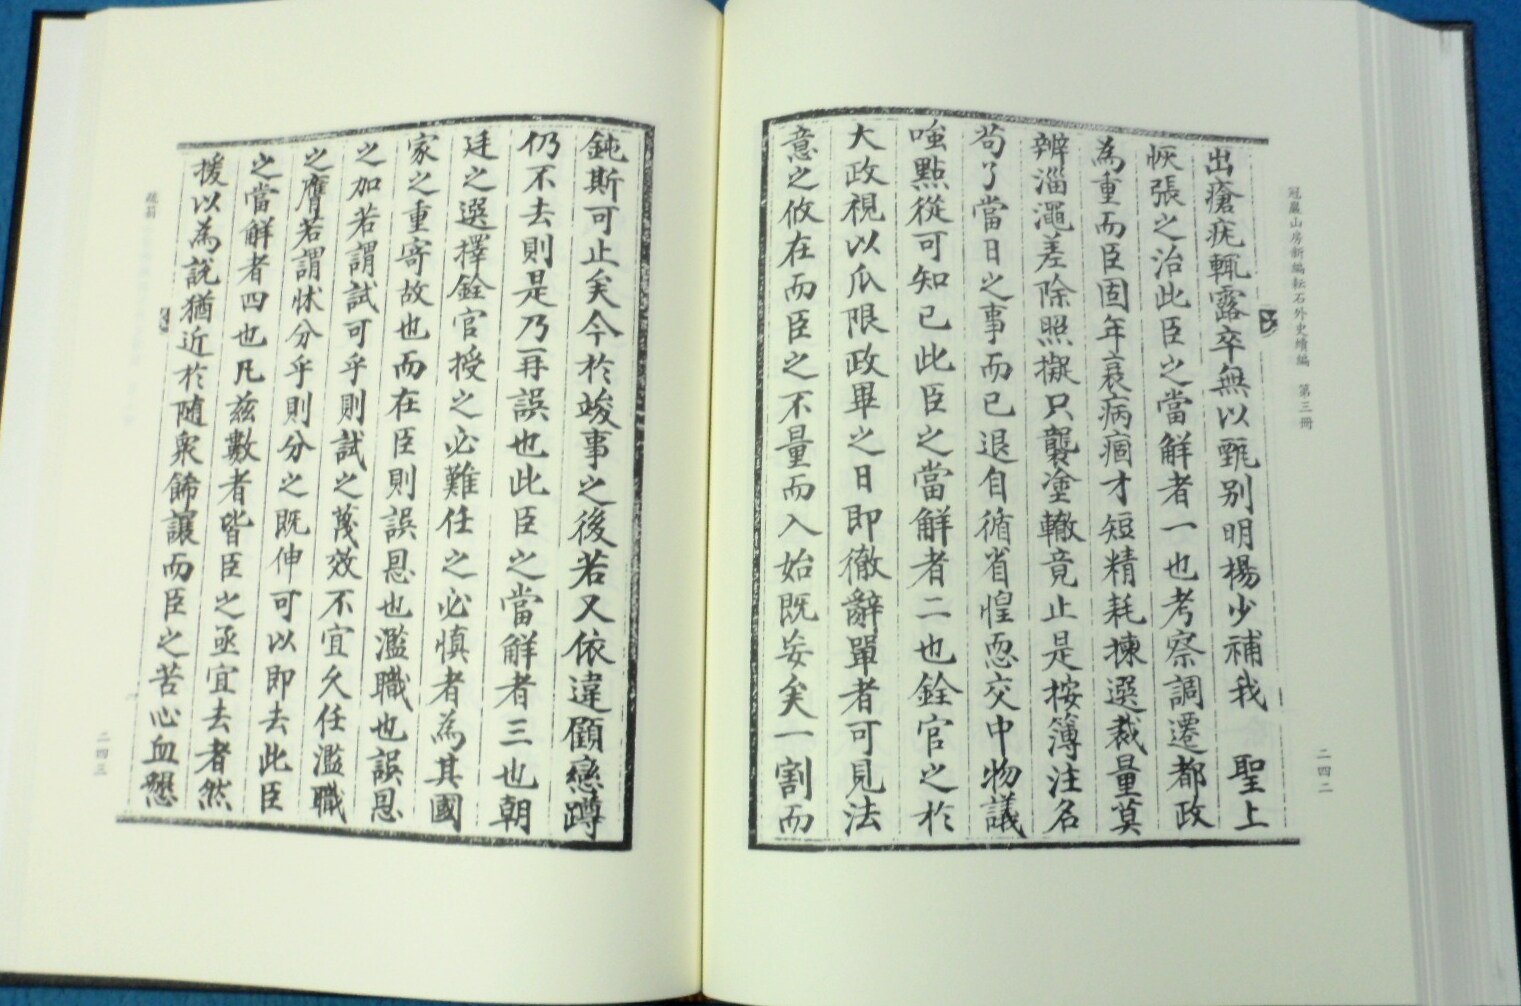 冠巖山房新編耘石外史續編　第三冊
出瘡疣輒露卒無以甄别明楊少補我　聖上
恢張之治此臣之當解者一也考察調遷都政
為重而臣固年衰病痼才短精耗揀選裁量莫
辨淄澠差除照擬只襲塗轍竟止是桉簿注名
苟了當日之事而已退自循省惶恧交中物議
嗤點從可知已此臣之當解者二也銓官之於
大政視以瓜限政畢之日即徹辭單者可見法
意之攸在而臣之不量而入始既妄矣一割而
二四二
鈍斯可止矣今於竣事之後若又依違顧戀蹲
仍不去則是乃再誤也此臣之當解者三也朝
廷之選擇銓官授之必難任之必慎者為其國
家之重寄故也而在臣則誤恩也濫職也誤恩
之加若謂試可乎則試之蔑效不宜久任濫職
之膺若謂怵分乎則分之既伸可以即去此臣
之當解者四也凡茲數者皆臣之亟宜去者然
援以為說猶近於随衆餙讓而臣之苦心血懇
疏箚
二四三